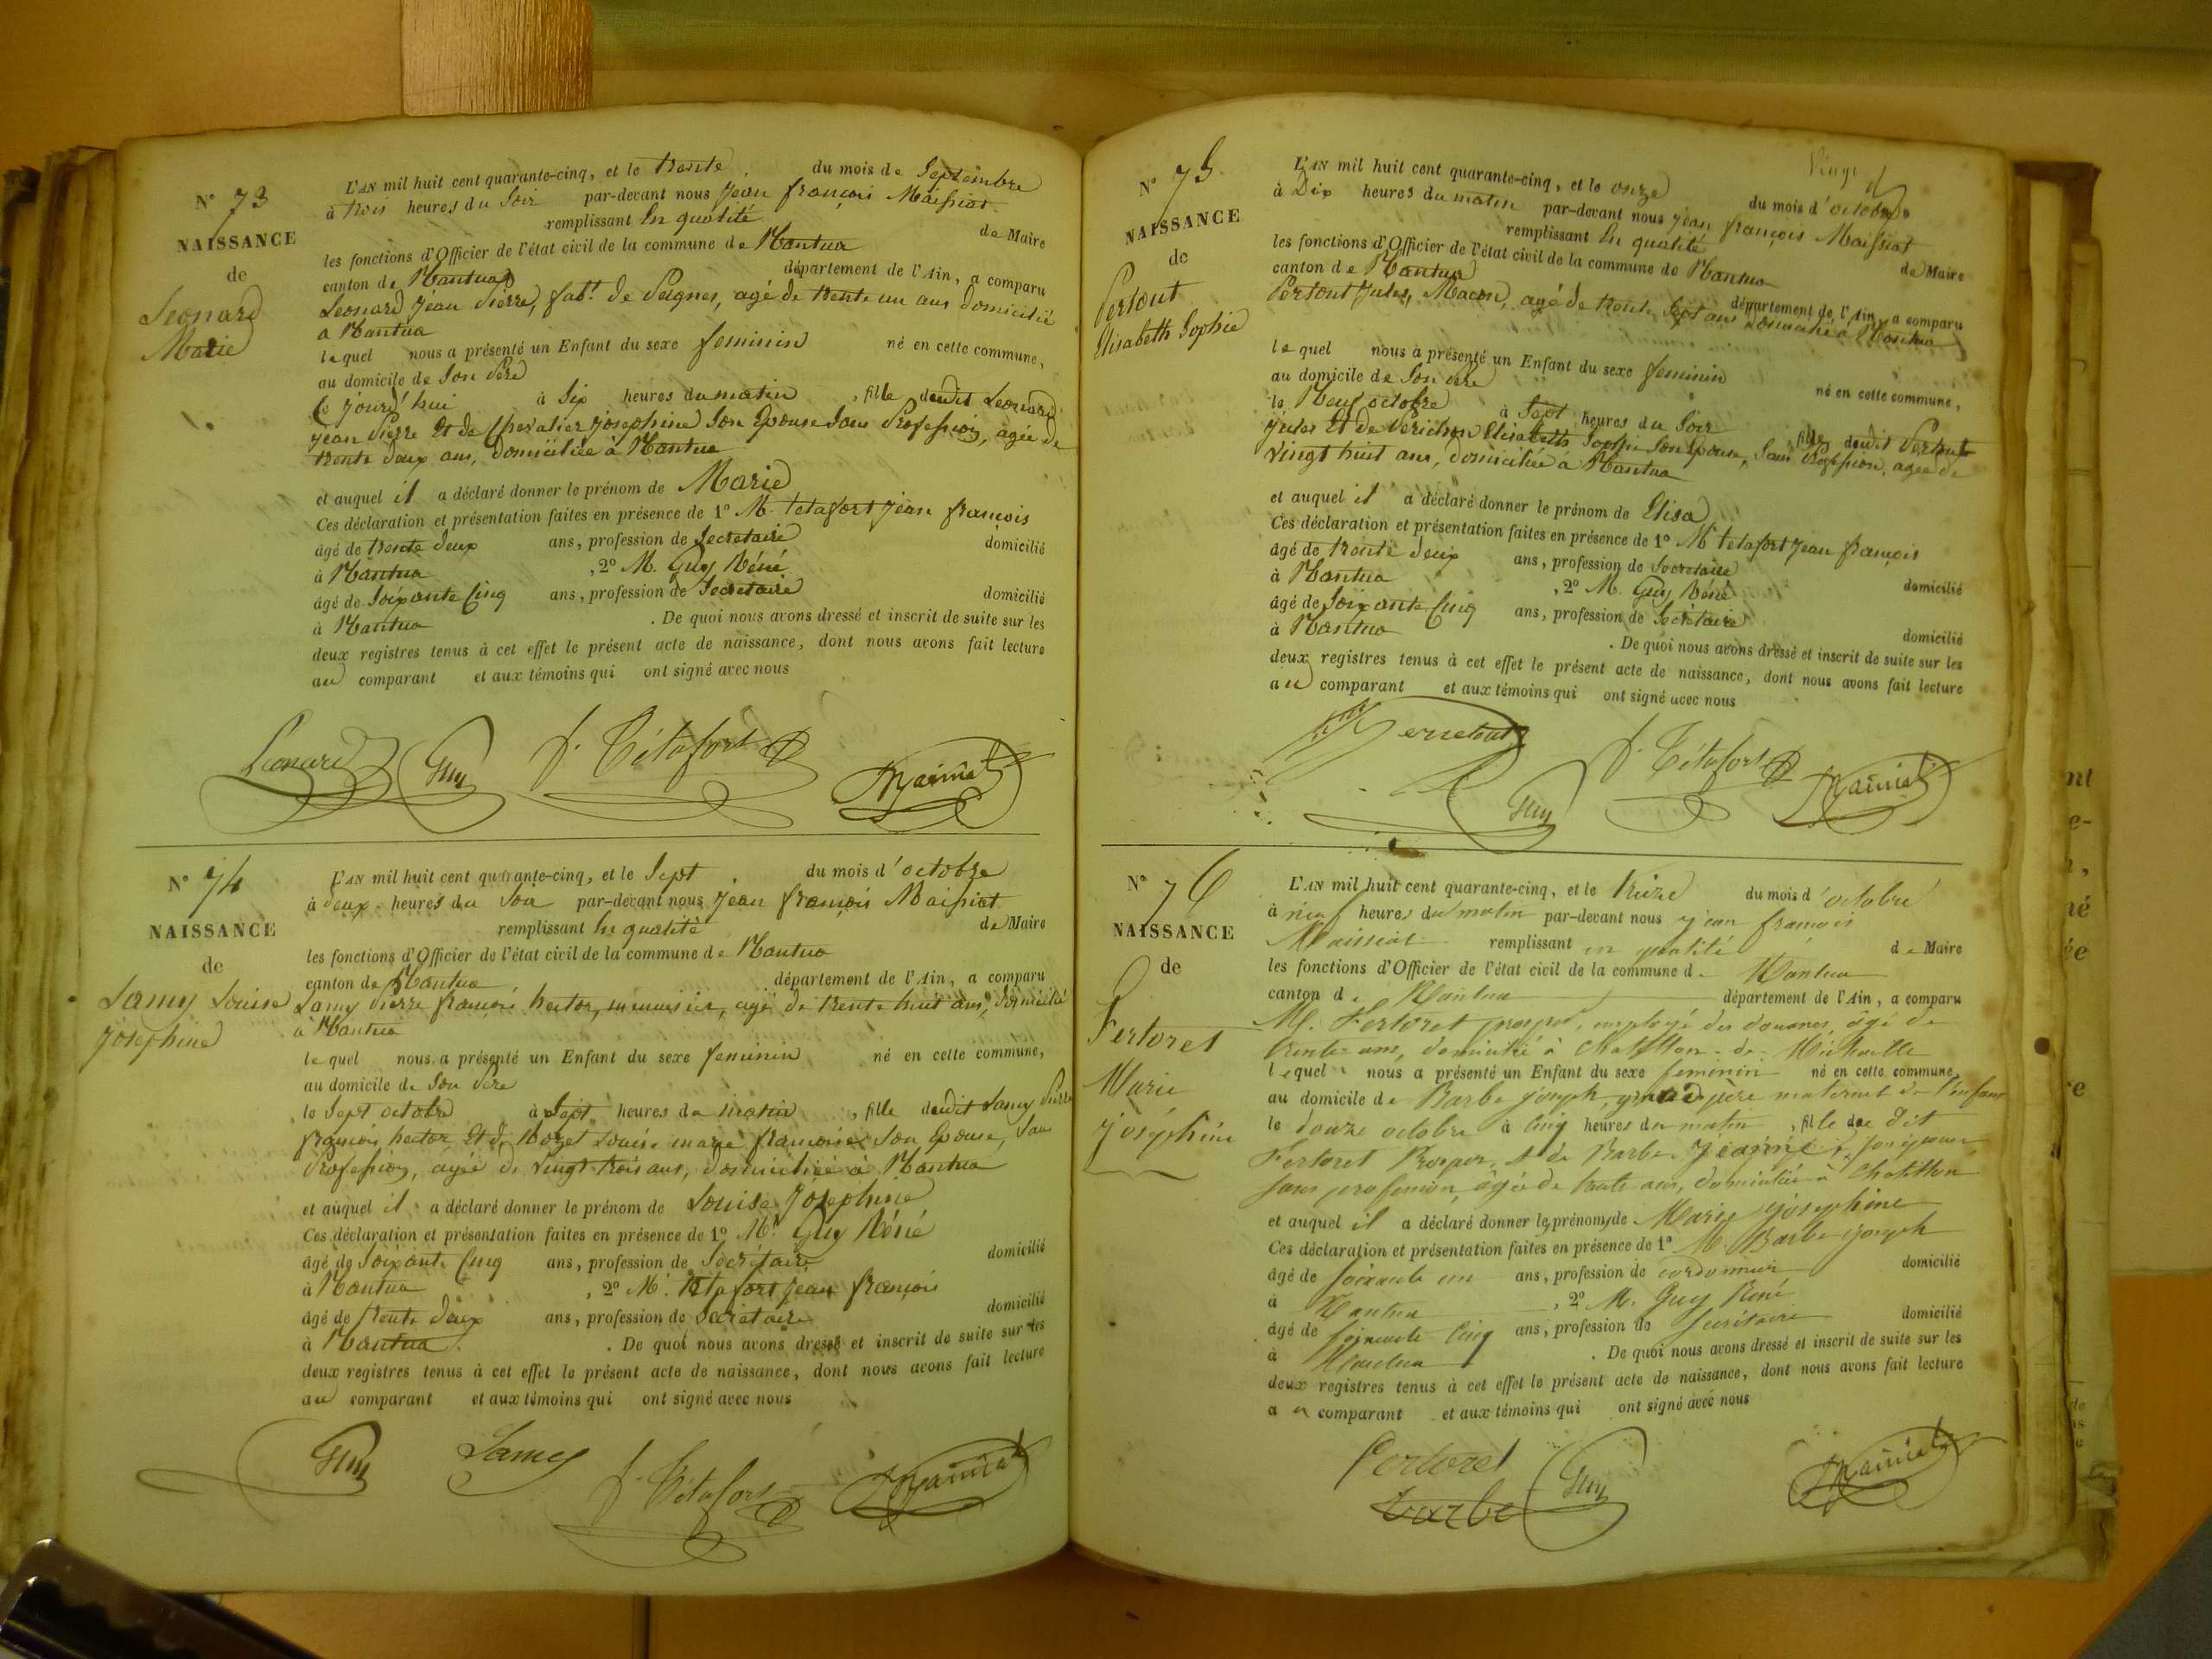 N° 73
NAISSANCE
de
Leonard
Marie
L'AN mil huit cent quarante-cinq, et le trente du mois de Septembre
à trois heures du Soir par-devant nous Jean françois Maissiat
remplissant En qualité de Maire
les fonctions d'Officier de l'état civil de la commune de Nantua
canton de Nantua département de l'Ain, a comparu
Leonard Jean Pierre, fabt. de Peignes, agé de trente un ans domicilié
a Nantua
lequel nous a présenté un Enfant du sexe feminin né en cette commune,
au domicile de Son Père
Ce jourd'hui à Six heures du matin, fille dudit Leonard
Jean Pierre Et de Chevalier Josephine Son Epouse Sans Profession, agée de
trente deux ans, Domiciliée à Nantua
et auquel il a déclaré donner le prénom de Marie
Ces déclaration et présentation faites en présence de 1° M. tetafort Jean françois
âgé de trente deux ans, profession de Secretaire domicilié
à Nantua, 2° M. Guy Réné
âgé de Soixante Cinq ans, profession de Secretaire domicilié
à Nantua. De quoi nous avons dressé et inscrit de suite sur les
deux registres tenus à cet effet le présent acte de naissance, dont nous avons fait lecture
au comparant et aux témoins qui ont signé avec nous
Leonard Guy J. Tétafort Maissiat
N° 74
NAISSANCE
de
Lamy Louise
Josephine
L'AN mil huit cent quarante-cinq, et le Sept du mois d'octobre
à deux heures du Soir par-devant nous Jean françois Maissiat
remplissant En qualité de Maire
les fonctions d'Officier de l'état civil de la commune de Nantua
canton de Nantua département de l'Ain, a comparu
Lamy Pierre françois hector, menuisier, agé de trente huit ans, domicilié
à Nantua
lequel nous a présenté un Enfant du sexe feminin né en cette commune,
au domicile de Son Père
le Sept octobre à Sept heures du matin, fille dudit Lamy Pierre
françois hector Et de Rozet Louise marie françoise Son Epouse, Sans
Profession, agée de Vingt trois ans, domiciliée à Nantua
et auquel il a déclaré donner le prénom de Louise Josephine
Ces déclaration et présentation faites en présence de 1° Mr. Guy Réné
âgé de Soixante Cinq ans, profession de Secrétaire domicilié
à Nantua, 2° M. tetafort Jean françois
âgé de trente deux ans, profession de Secretaire domicilié
à Nantua. De quoi nous avons dressé et inscrit de suite sur les
deux registres tenus à cet effet le présent acte de naissance, dont nous avons fait lecture
au comparant et aux témoins qui ont signé avec nous
Guy Lamy J. Tétafort Maissiat
Vingt
N° 75
NAISSANCE
de
Pertout
Elisabeth Sophie
L'AN mil huit cent quarante-cinq, et le onze du mois d'octobre
à Dix heures du matin par-devant nous Jean françois Maissiat
remplissant En qualité de Maire
les fonctions d'Officier de l'état civil de la commune de Nantua
canton de Nantua département de l'Ain, a comparu
Pertout Jules, Macon, agé de trente Sept ans domicilié à Nantua
lequel nous a présenté un Enfant du sexe feminin né en cette commune,
au domicile de Son Père
le Neuf octobre à Sept heures du Soir, fille dudit Pertout
Jules Et de Elisabeth Sophie Son Epouse, Sans Profession, agée de
Vingt huit ans, domiciliée à Nantua
et auquel il a déclaré donner le prénom de Elisa
Ces déclaration et présentation faites en présence de 1° M. tetafort Jean françois
âgé de trente deux ans, profession de Secretaire domicilié
à Nantua, 2° M. Guy Réné
âgé de Soixante Cinq ans, profession de Secrétaire domicilié
à Nantua. De quoi nous avons dressé et inscrit de suite sur les
deux registres tenus à cet effet le présent acte de naissance, dont nous avons fait lecture
au comparant et aux témoins qui ont signé avec nous
J. Tétafort Guy Maissiat
N° 76
NAISSANCE
de
Fertoret
Marie
joséphine
L'AN mil huit cent quarante-cinq, et le treize du mois d'octobre
à neuf heures du matin par-devant nous jean françois
Maissiat remplissant en qualité de Maire
les fonctions d'Officier de l'état civil de la commune de Nantua
canton de Nantua département de l'Ain, a comparu
M. Fertoret prosper, employé des douanes, âgé de
trente ans, domicilié à Chatillon-de-Michaille
lequel nous a présenté un Enfant du sexe feminin né en cette commune,
au domicile de Barbe joseph, grand père maternel de l'enfant
le douze octobre à cinq heures du matin, fille du dit
Fertoret Prosper, et de Barbe Jeanne, son épouse
sans profession, âgée de trente ans, domiciliée à Chatillon
et auquel il a déclaré donner les prénoms de Marie joséphine
Ces déclaration et présentation faites en présence de 1° M. Barbe joseph
âgé de soixante un ans, profession de cordonnier domicilié
à Nantua, 2° M. Guy Réné
âgé de soixante cinq ans, profession de secrétaire domicilié
à Nantua. De quoi nous avons dressé et inscrit de suite sur les
deux registres tenus à cet effet le présent acte de naissance, dont nous avons fait lecture
au comparant et aux témoins qui ont signé avec nous
Fertoret Guy Maissiat
barbe